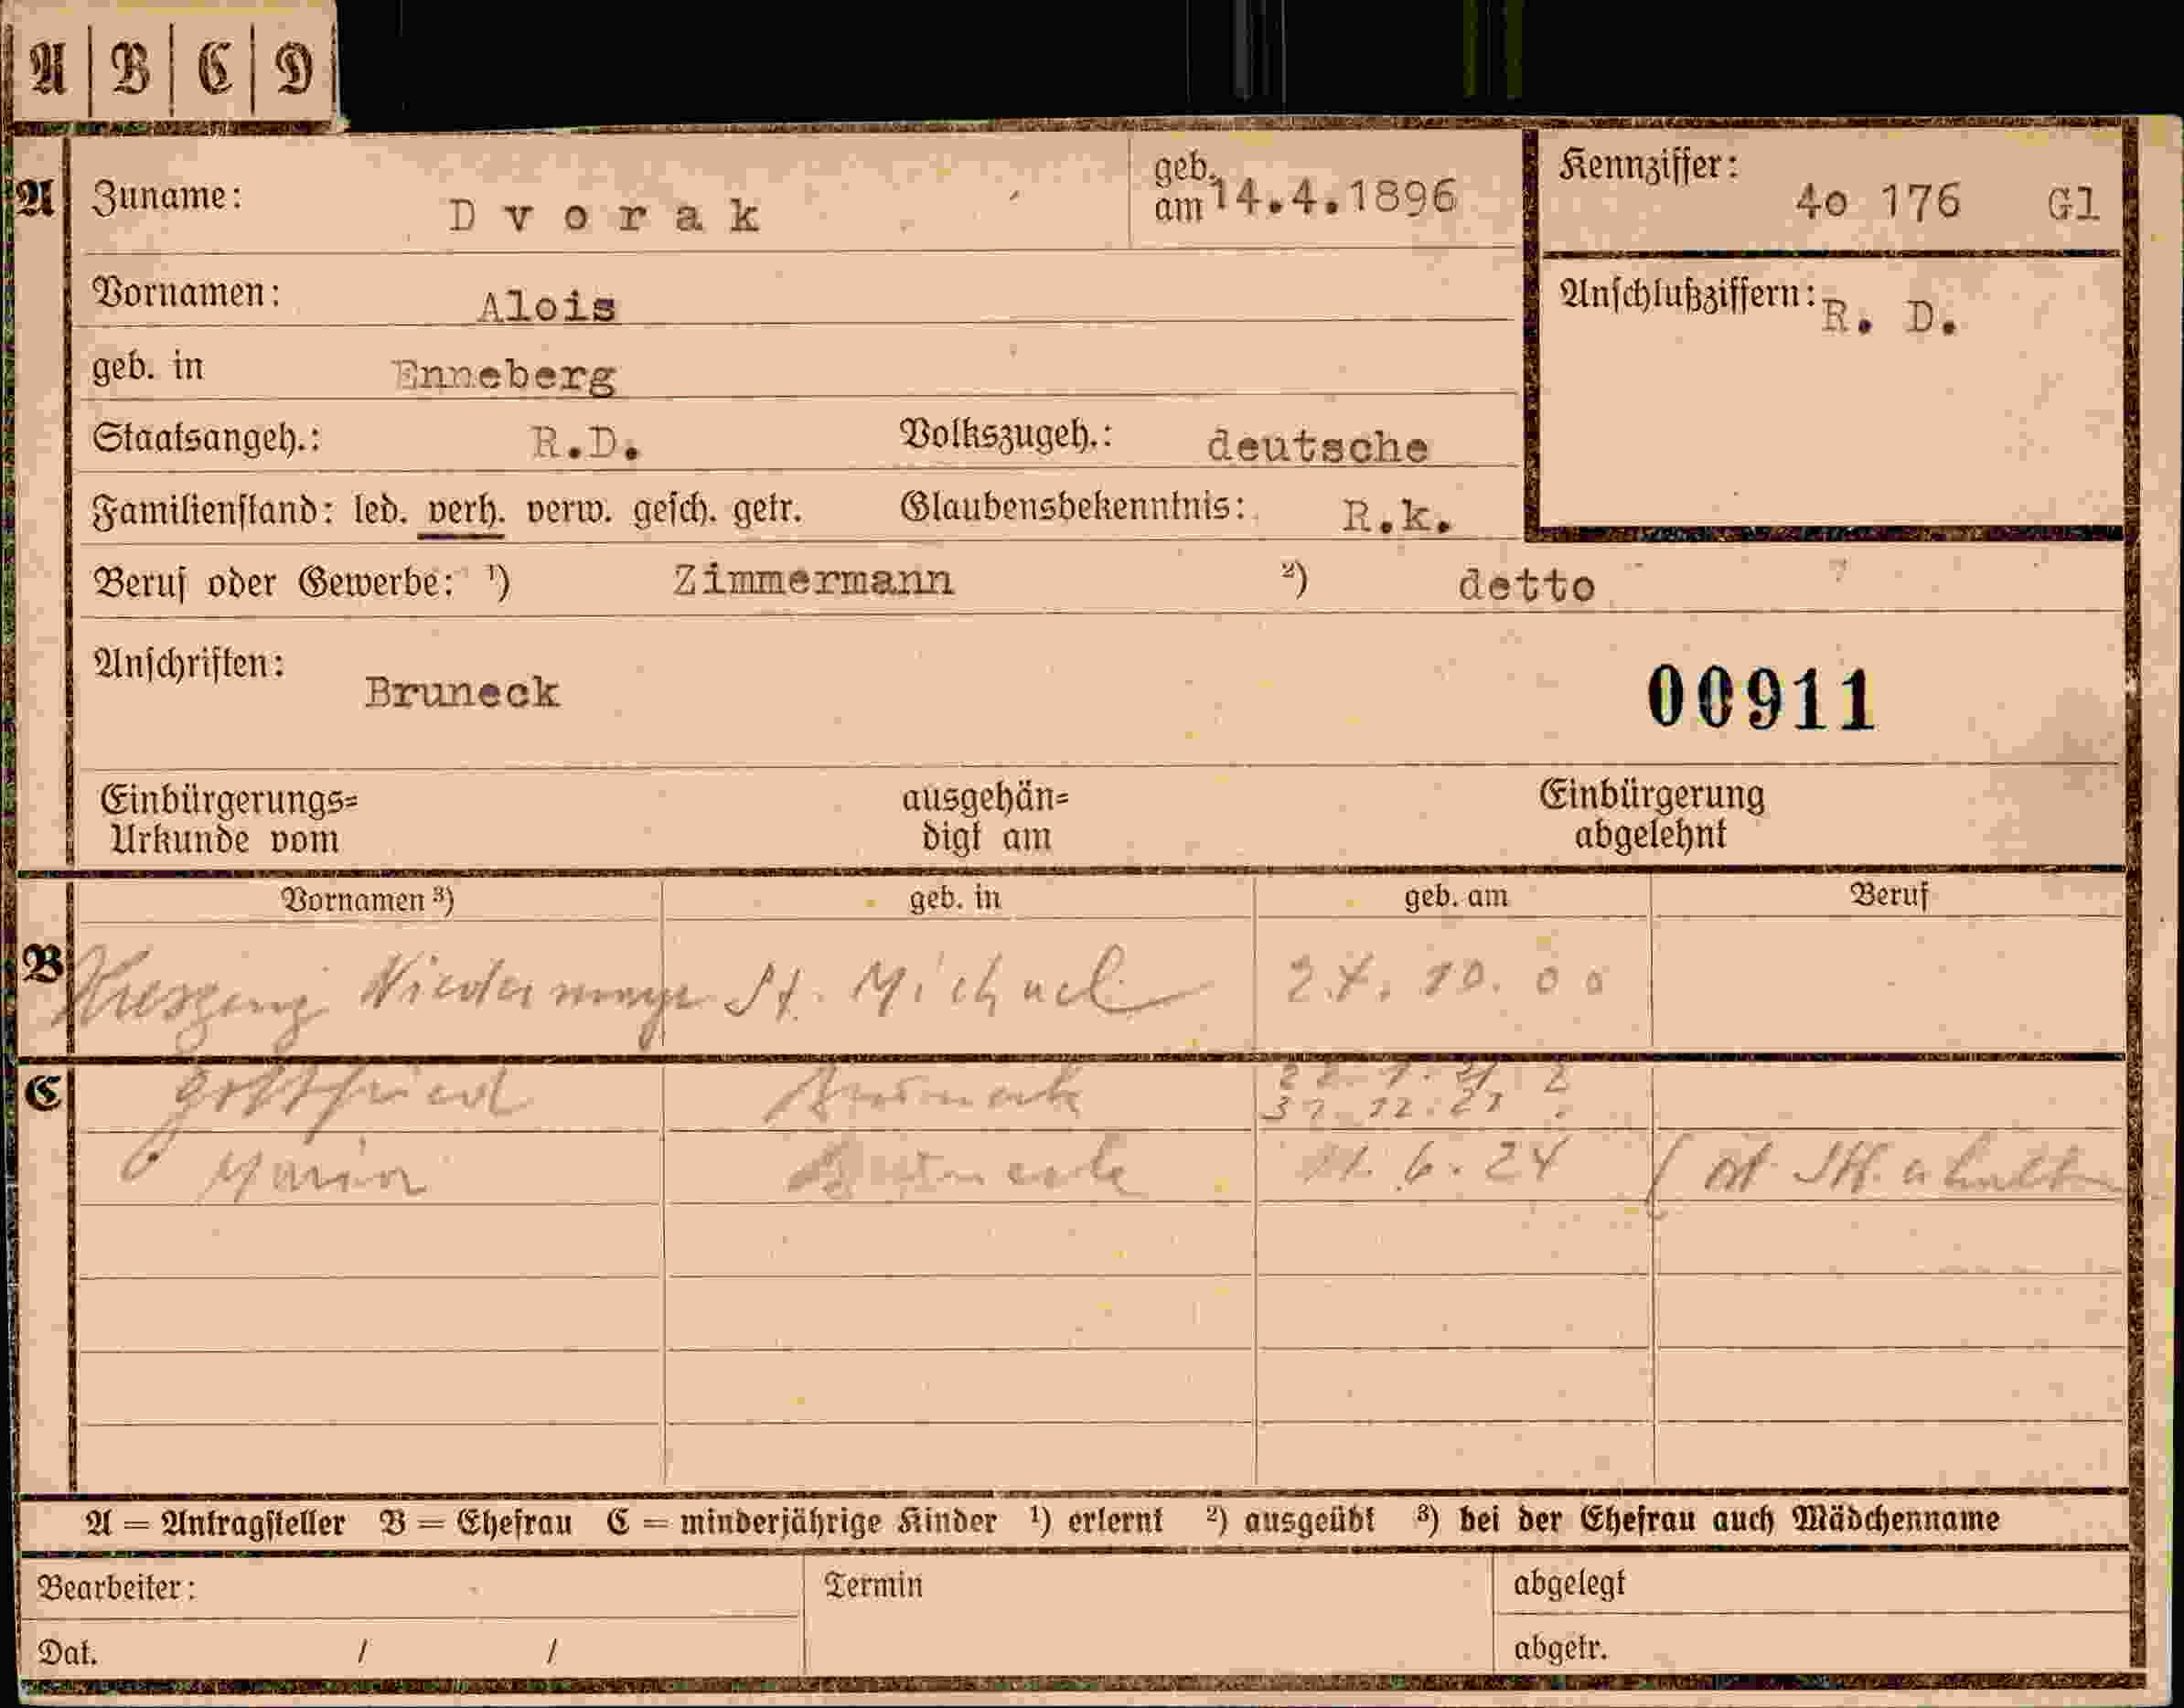 A | B | C | D
A Zuname: Dvorak geb. am 14.4.1896 Kennziffer: 4o 176 Gl
Vornamen: Alois Anschlußziffern: R. D.
geb. in Enneberg
Staatsangeh.: R.D. Volkszugeh.: deutsche
Familienstand: led. verh. verw. gesch. getr. Glaubensbekenntnis: R.k.
Beruf oder Gewerbe: ¹) Zimmermann ²) detto
Anschriften: Bruneck 00911
Einbürgerungs= ausgehän= Einbürgerung
Urkunde vom digt am abgelehnt
Vornamen ³) geb. in geb. am Beruf
B Niedermayr St. Michael 10. 00
C Gottfried Bruneck
31. 12. 21
Maria Bruneck 6. 24
A = Antragsteller B = Ehefrau C = minderjährige Kinder ¹) erlernt ²) ausgeübt ³) bei der Ehefrau auch Mädchenname
Bearbeiter: Termin abgelegt
Dat. / / abgetr.